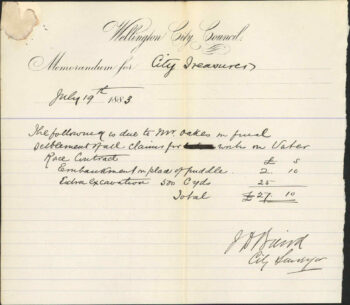 Wellington City Council.
Memorandum for City Treasurer
July 19th 1883
The following is due to Mr. Oakes in final
settlement of all claims for work on Water
Race Contract £ s
Embankment in place of puddle 2 . 10
Extra excavation 500 C yds 25
Total £ 27 . 10
J D Baird
City Surveyor